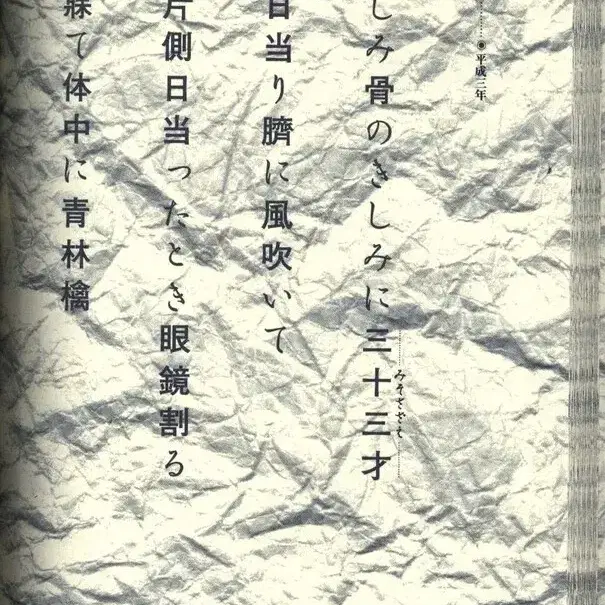 平成三年
しみ骨のきしみに三十三才
みそさざえ
日当り臍に風吹いて
片側日当ったとき眼鏡割る
寐て体中に青林檎